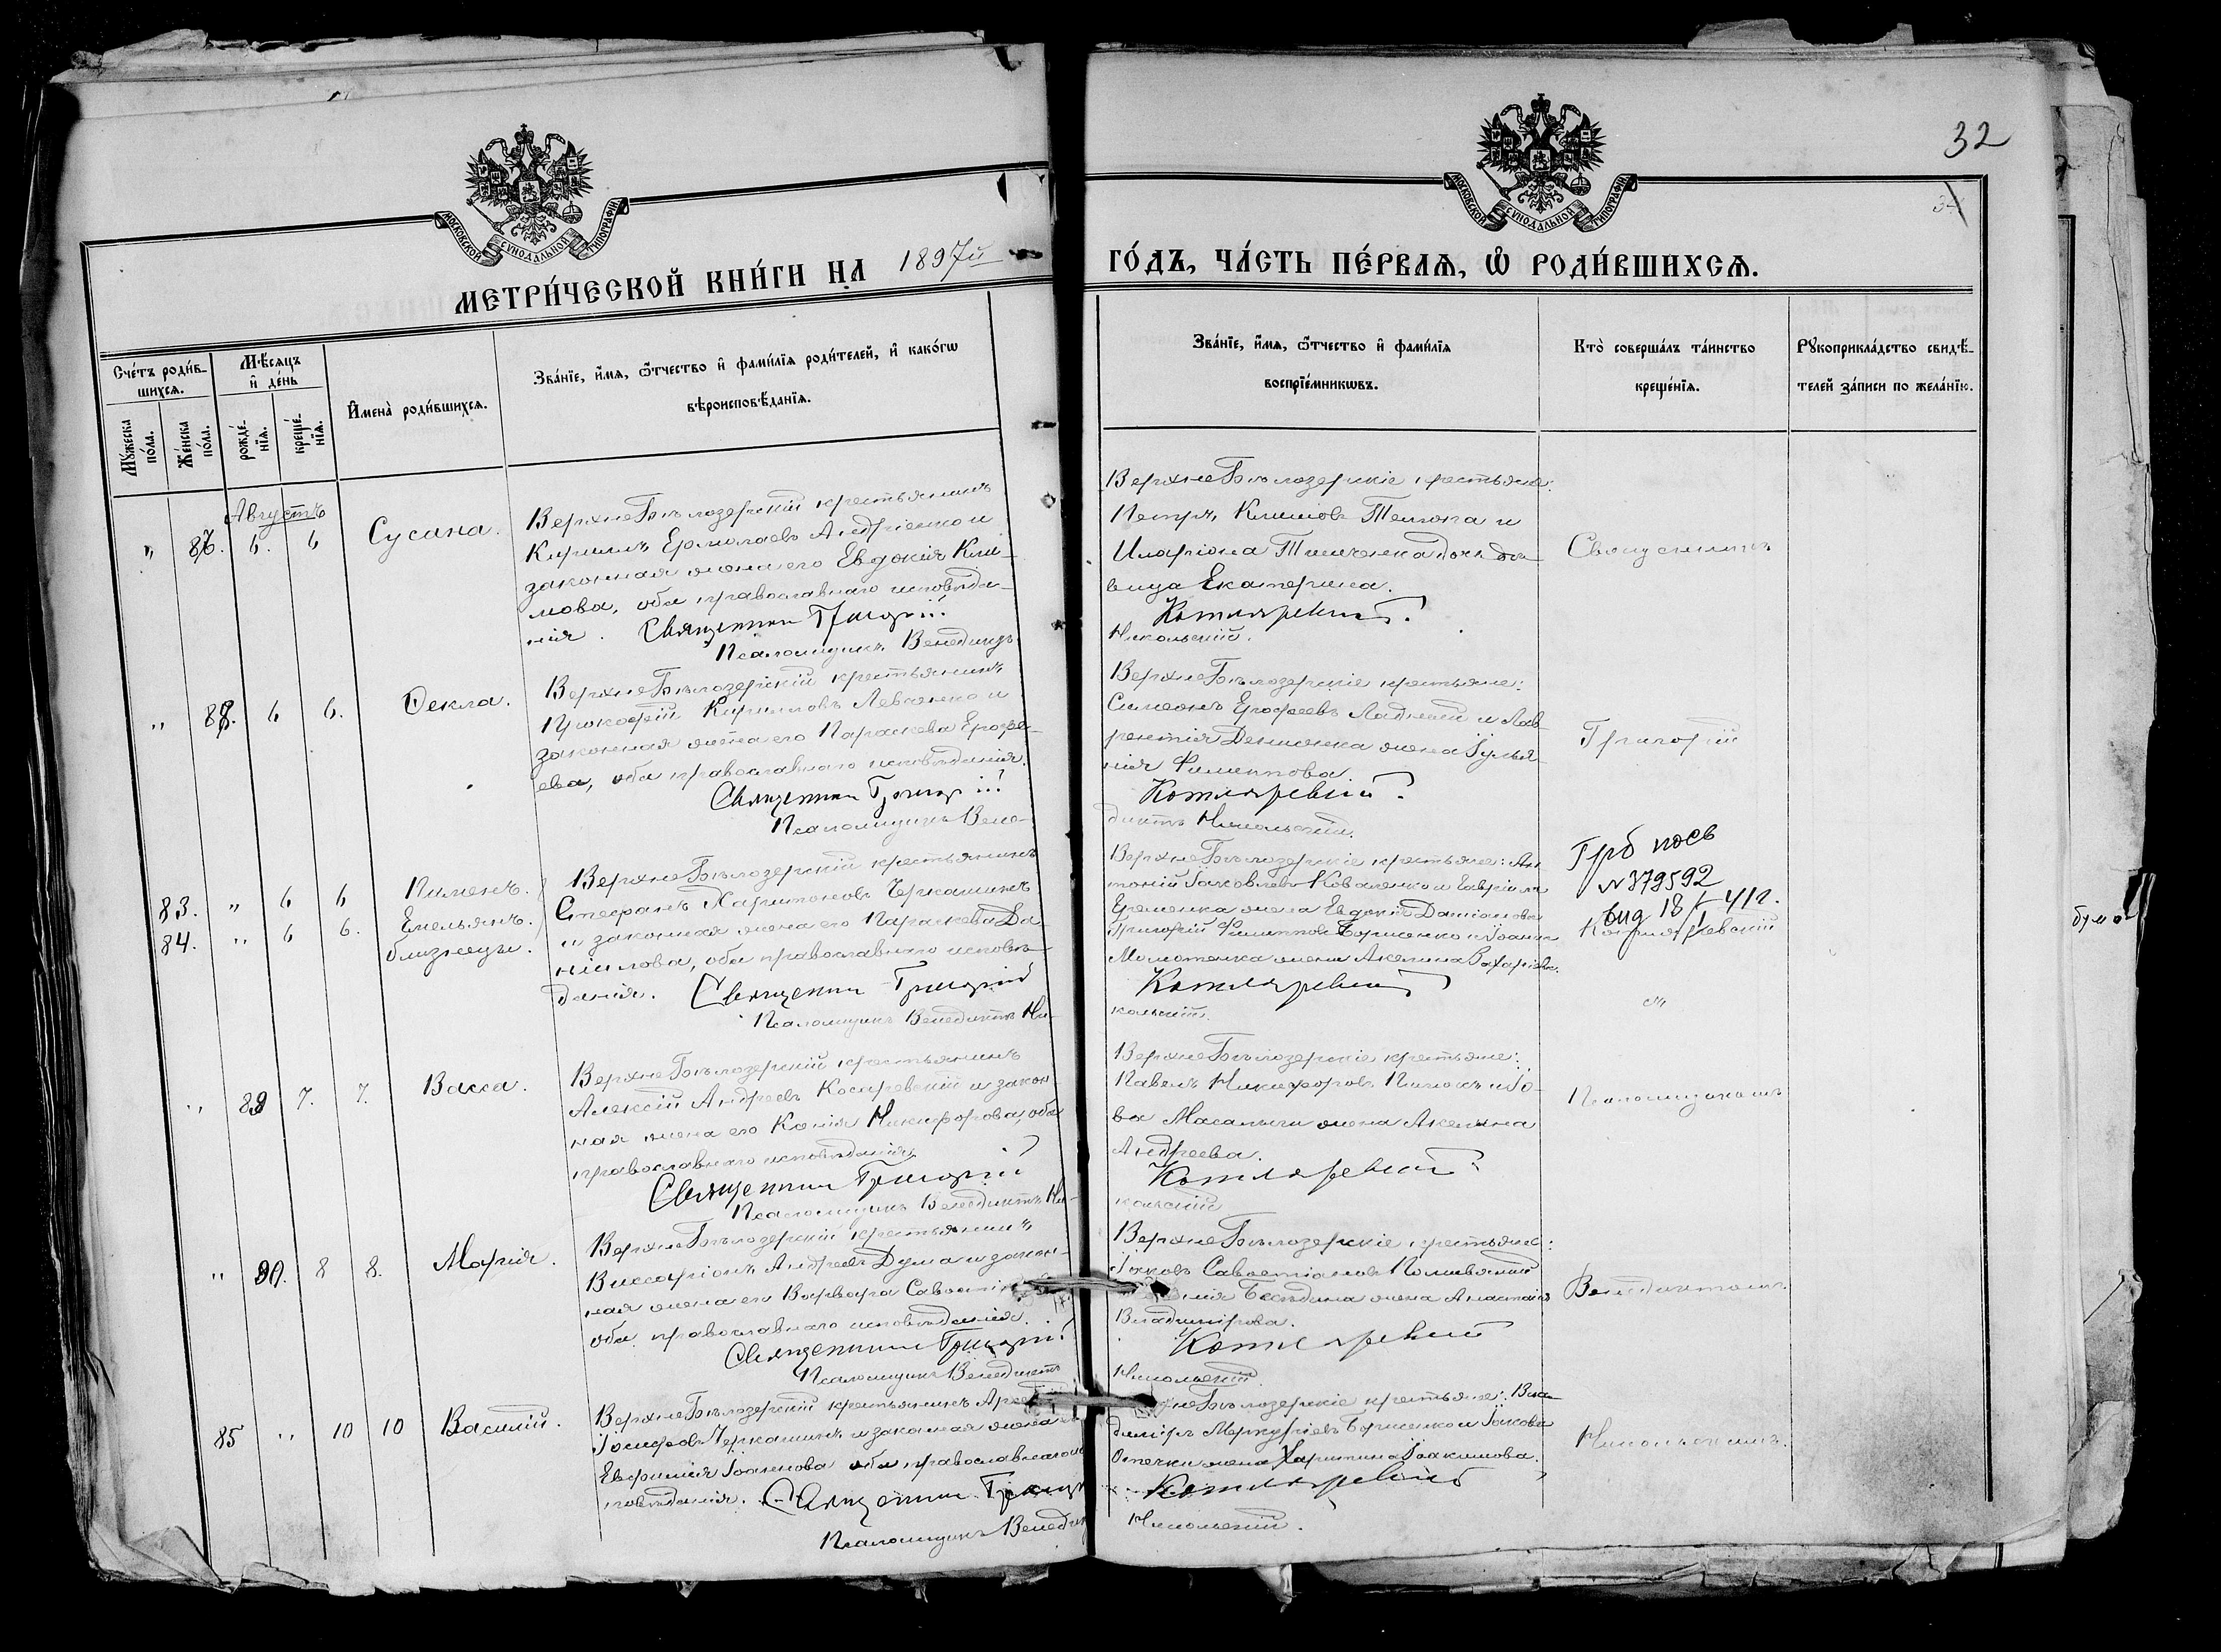 32
МОСКОВСКОЙ СУНОДАЛЬНОЙ ТИПОГРАФІИ
МОСКОВСКОЙ СУНОДАЛЬНОЙ ТИПОГРАФІИ
МЕТРИ́ЧЕСКОЙ КНИ́ГИ НА 1897й
ГО́ДЪ, ЧА́СТЬ ПЕ́РВАѦ, Ѡ҆ РОДИ́ВШИХСѦ.
Сче́тъ роди́в-
шихсѧ.
Мꙋ́жеска
по́ла.
Же́нска
по́ла.
Мѣ́сѧцъ
и҆ де́нь
рожде́-
нїѧ.
креще́-
нїѧ.
И҆мена̀ роди́вшихсѧ.
Зва́нїе, и҆́мѧ, ѻ҆́тчество и҆ фами́лїѧ роди́телей, и҆ како́гѡ
вѣроисповѣ́данїѧ.
Зва́нїе, и҆́мѧ, ѻ҆́тчество и҆ фами́лїѧ
воспрїе́мникѡвъ.
Кто̀ соверша́лъ та́инство
креще́нїѧ.
Рꙋкоприкла́дство свидѣ́-
телей за́писи по жела́нїю.
Августъ
" 6. 6 Сусана.
Верхне Бѣлозерскій крестьянинъ
Кириллъ Ермолаевъ Андріенко и
законная жена его Евдокія Кли-
мова, оба православнаго исповѣда-
нія. Священникъ Григорій
Псаломщикъ Венедиктъ
Верхне Бѣлозерскіе крестьяне:
Петръ Климовъ и
Иларіона дочь дѣ-
вица Екатерина.
Котляревскій.
Никольскій.
Священникъ
" 88. 6 6. Ѳекла.
Верхне Бѣлозерскій крестьянинъ
Прокофій Кирилловъ Левченко и
законная жена его Параскева Ерофе-
ева, оба православнаго исповѣданія.
Священникъ Григорій
Псаломщикъ Вене-
Верхне Бѣлозерскіе крестьяне:
Симеонъ Ерофеевъ Ладный и Лав-
рентія Демченка жена Іулья-
нія Филиппова.
Котляревскій.
диктъ Никольскій.
Григорій
83. " 6 6 Пименъ.
84. " 6 6. Емельянъ.
близнецы.
Верхне Бѣлозерскій крестьянинъ
Стефанъ Харитоновъ Черкашинъ
и законная жена его Параскева Да-
ніилова, оба православнаго исповѣ-
данія. Священникъ Григорій
Псаломщикъ Венедиктъ Ни-
Верхне Бѣлозерскіе крестьяне: Ан-
тоній Іаковлевъ Коваленко и Гавріила
Еременка жена Евдокія Даміанова
Григорій Филипповъ Борисенко и Іоанна
жена Акелина Захаріева.
Котляревскій
кольскій.
№ 379592
Котляревскій
" 89 7. 7. Васса.
Верхне Бѣлозерскій крестьянинъ
Алексій Андреевъ Косаревскій и закон-
ная жена его Ксенія Никифорова, оба
православнаго исповѣданія.
Священникъ Григорій
Псаломщикъ Венедиктъ Ни-
Верхне Бѣлозерскіе крестьяне:
Павелъ Никифоровъ и Іо-
ва жена Акелина
Андреева.
Котляревскій
кольскій
Псаломщикомъ
" 90. 8 8. Марія.
Верхне Бѣлозерскій крестьянинъ
Виссаріонъ Андреевъ Дума и закон-
ная жена его Варвара
оба православнаго исповѣданія.
Священникъ Григорій
Псаломщикъ Венедиктъ
Верхне Бѣлозерскіе крестьяне:
Іаковъ Савостіановъ
жена Анастасія
Владимірова.
Котляревскій
Никольскій.
Венедиктомъ
85 " 10 10 Василій.
Верхне Бѣлозерскій крестьянинъ
Іосифовъ Черкашинъ и законная жена
Евфимія Іоаннова оба православнаго
повѣданія. Священникъ Григорій
Псаломщикъ Венедик
Бѣлозерскіе крестьяне: Вла-
диміръ Меркуріевъ Борисенко и Іакова
жена Харитина Іоакимова.
Котляревскій
Никольскій.
Никольскимъ.